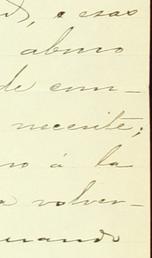 , e esas
abuso
de com-
necesite;
no á la
a volver-
uando